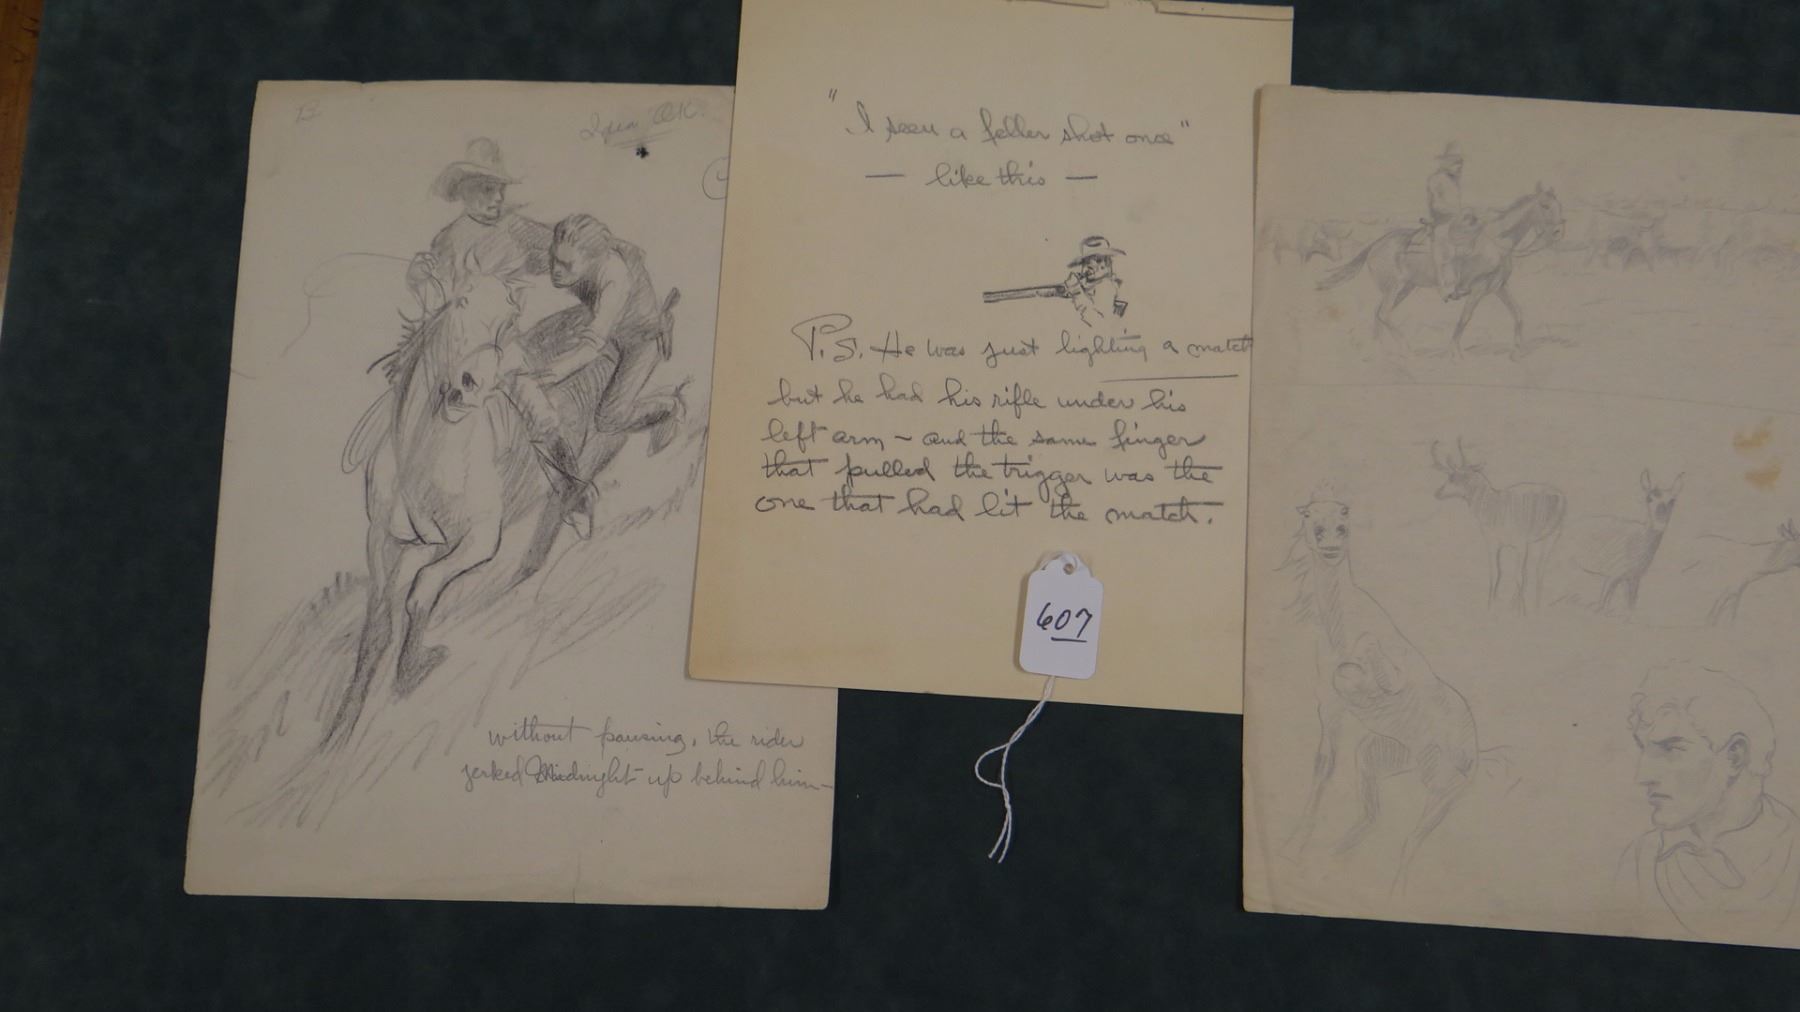 B
Idea OK.
without pausing, the rider
jerked Midnight up behind him—
"I seen a feller shot once"
— like this —
P.S. He was just lighting a match
but he had his rifle under his
left arm ~ and the same finger
that pulled the trigger was the
one that had lit the match.
607